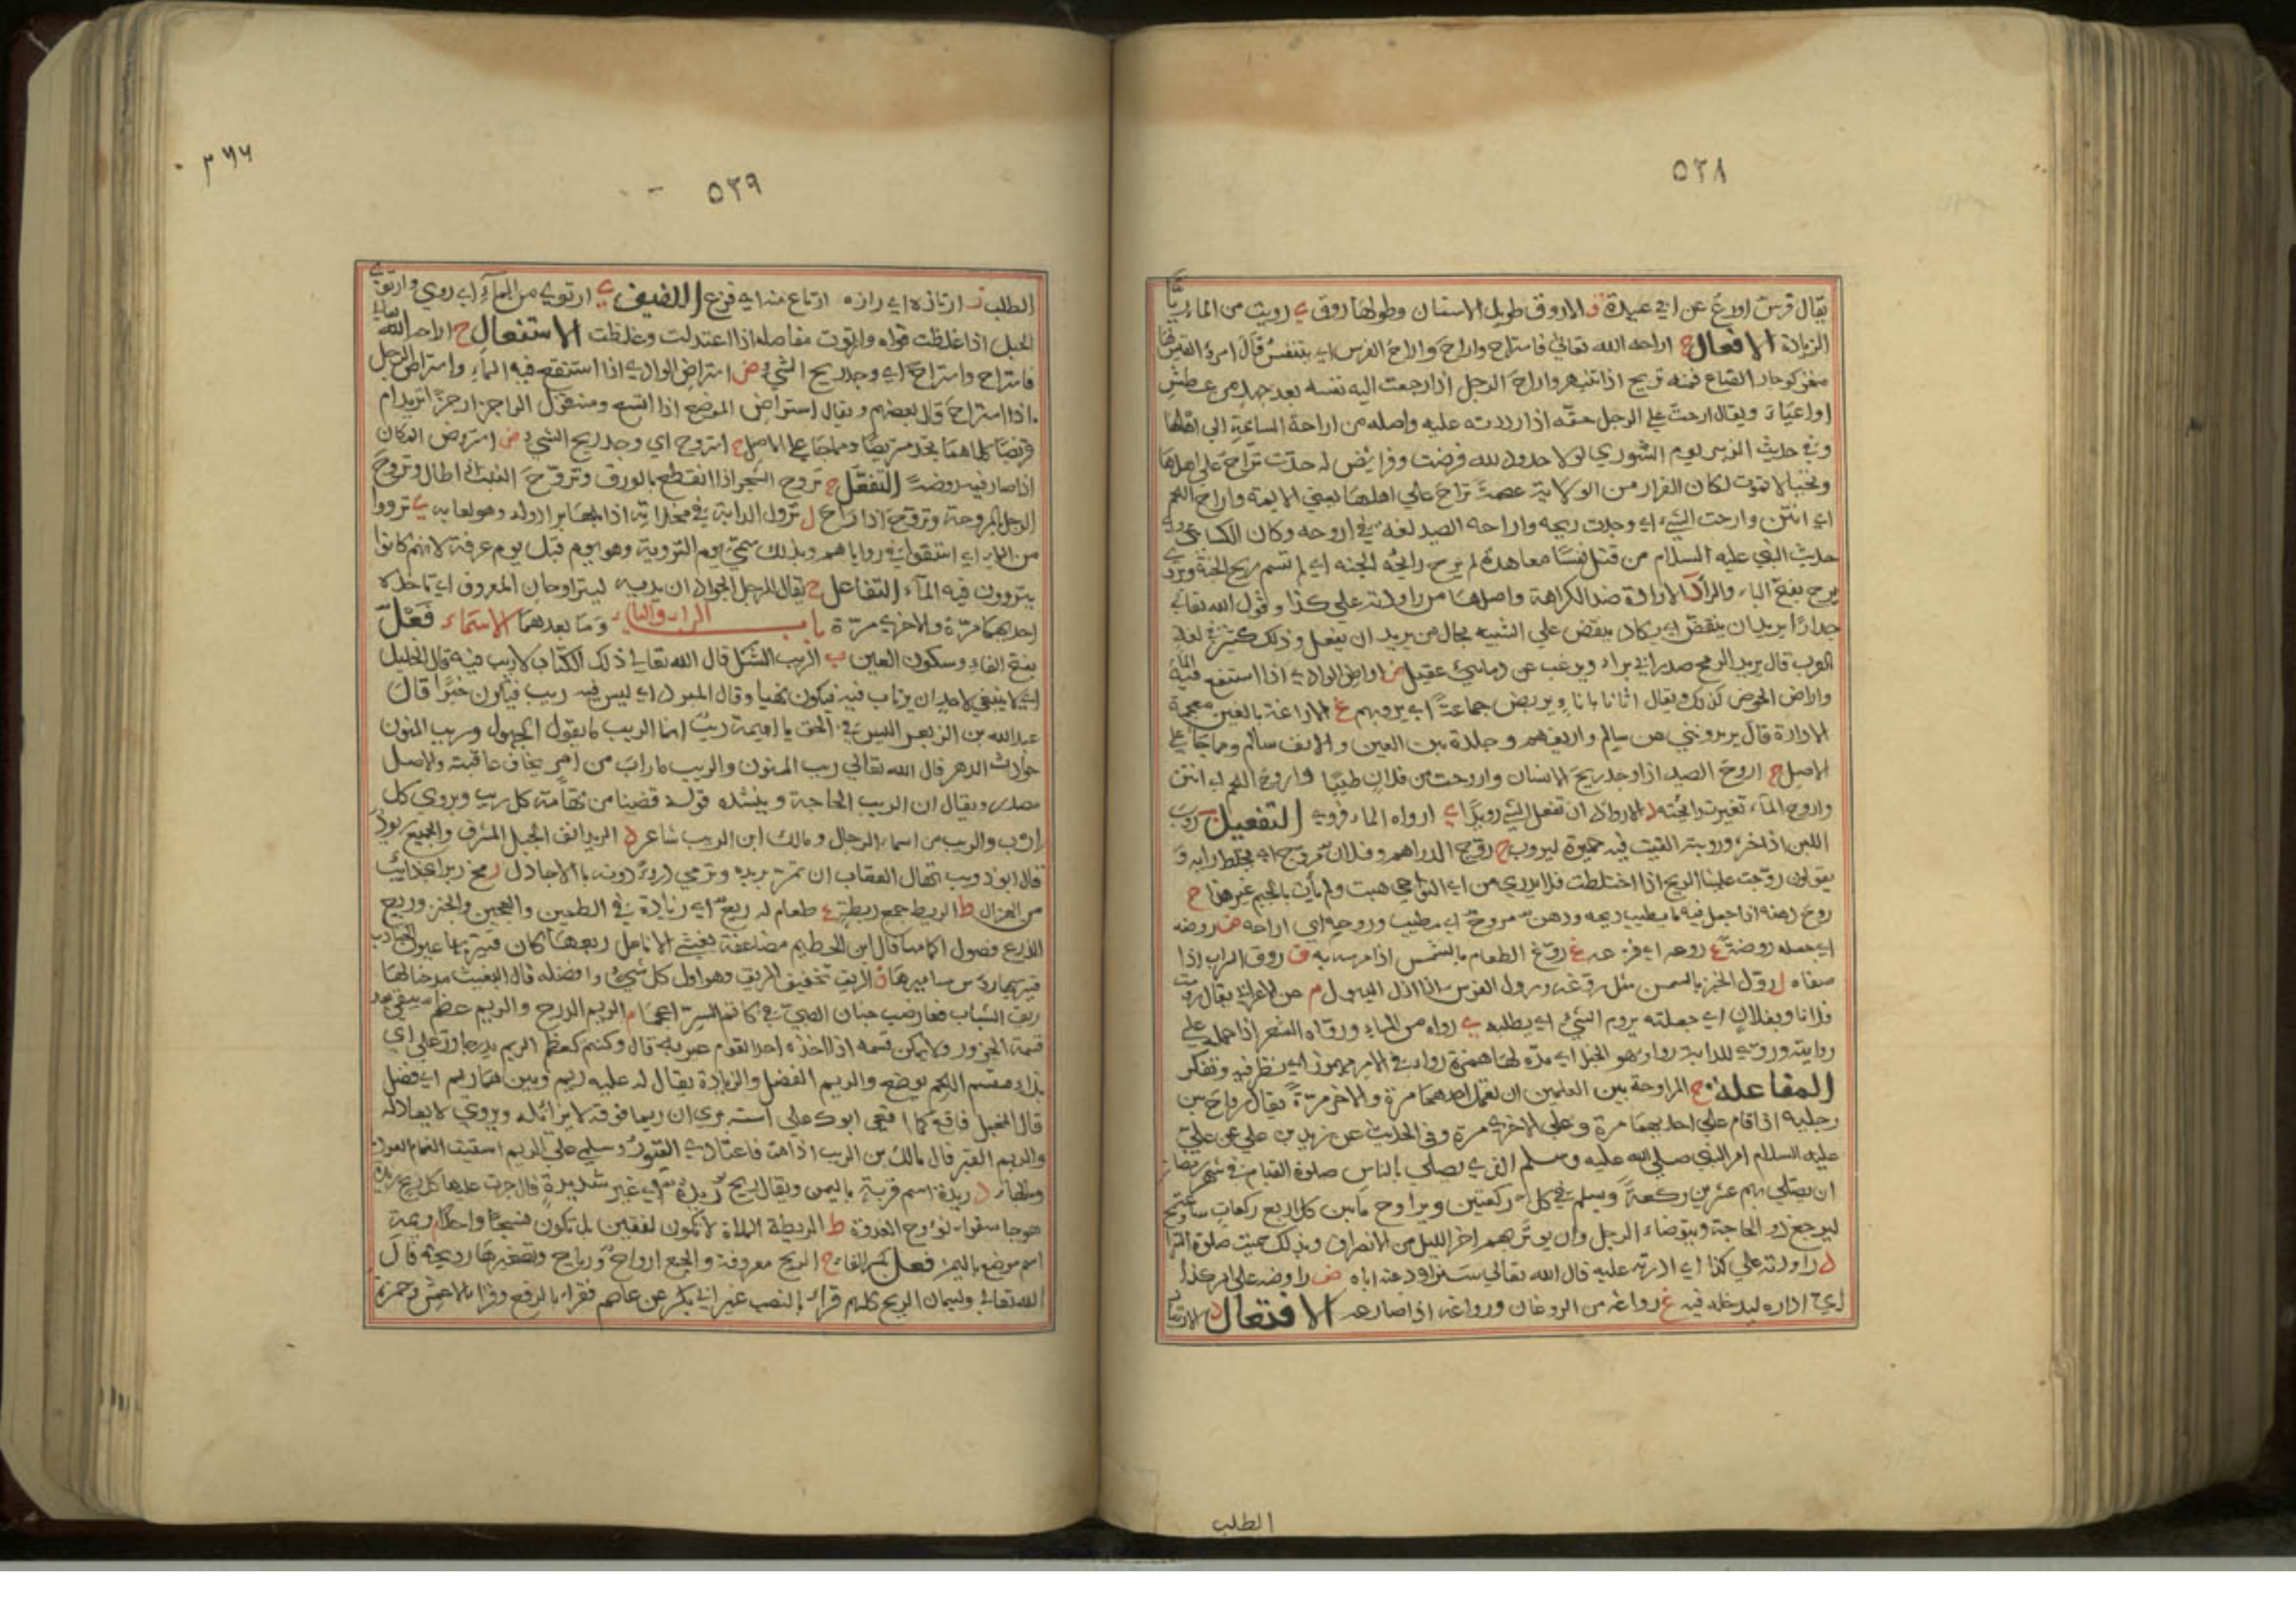 ٥٣٨
يقال فرس اورغ عن ابي عبيدة ق الاروق طويل الاسنان وطولها روق ي رويت من الماء ريًّا
الزيادة الافعال ح اراحه الله تعالى فاستراح واراح واراح الفرس اي يتنفس قال امرؤ القيس لها
منخر كوجار الضباع فمنه تريح اذا تنبهر واراح الرجل اذا رجعت اليه نفسه بعد جهد من عطش
او اعياء ويقال ارحت على الرجل حقه اذا رددته عليه واصله من اراحة السائمة الى اهلها
وفي حديث الزبير يوم الشوري لولا حدود لله فرضت وفرايض له حدّت تراح على اهلها
وتحيا لا تموت لكان الفرار من الولاية عصمة تراح على اهلها يعني الايمة واراح اللحم
اي انتن وارحت الشيء اي وجدت ريحه واراحه الصيد لغة في اروحه وكان الكسائي
حديث النبي عليه السلام من قتل نفسًا معاهدة لم يرح رايحة الجنة اي لم تشم ريح الجنة ويروى
يرح بفتح الياء والراء د الارادة ضد الكراهة واصلها من راودته على كذا وقول الله تعالى
جدارًا يريد ان ينقض اي يكاد ينقض على التشبيه بحال من يريد ان يفعل وذلك كثير في لغة
العرب قال يريد الرمح صدر ابي براء ويرغب عن دماء بني عقيل ض اراض الوادي اذا استنقع فيه الماء
واراض الحوض كذلك ويقال اتانا باناء يريض جماعة اي يرويهم غ الاراغة بالغين معجمة
الارادة قال يريدونني عن سالم واريغهم وجلدة بين العين والانف سالم ومما جاء على
الاصل ح اروح الصيد اذا وجد ريح الانسان واروحت من فلان طيبًا واروح اللحم اي انتن
واروح الماء تغيرت رائحته د الارواد ان تفعل الشيء رويدًا ي ارواه الماء فروي التفعيل ب روّب
اللبن اذا خثر وروبته القيت فيه خميرة ليروب ح روّج الدراهم وفلان مروّج اي مخلط رايه و
يقولون روّجت علينا الريح اذا اختلطت فلا يدري من اي النواحي هبت ولم يأت بالجيم غير هذا ح
روّح دهنه اذا جعل فيه ما يطيب ريحه ودهن مروّح اي مطيب وروحه اي اراحه ض روضه
اي جعله روضة ع روعه اي فزعه غ روّغ الطعام بالسمن اذا دسمه به ق روق الشراب اذا
صفاه ل روّل الخبز بالسمن مثل روغه ورول الفرس اذا ادلى ليبول م عن الاعرابي يقال رومت
فلانا وبفلان اي جعلته يروم الشيء اي يطلبه ي رواه من الماء وروّاه الشعر اذا حمله على
روايته وروّى للدابة رواء وهو الحبل اي مدّه لها همزة روأت في الامر مهموز اي نظر فيه وتفكر
المفاعلة ح المراوحة بين العملين ان يعمل احدهما مرة والاخر مرةً يقال راوح بين
رجليه اذا قام على احديهما مرة وعلى الاخرى مرة وفي الحديث عن زيد بن علي عن علي
عليه السلام امر النبي صلى الله عليه وسلم الذي يصلي بالناس صلوة القيام في شهر رمضان
ان يصلي بهم عشرين ركعةً ويسلم في كل ركعتين ويراوح ما بين كل اربع ركعات
ليرجع ذو الحاجة ويتوضاء الرجل وان يوتر بهم اخر الليل من الانصراف وبذلك سميت صلوة التراويح
د راودته على كذا اي ادرته عليه قال الله تعالى سنراود عنه اباه ض راوضه على امر كذا
اي اداره ليدخله فيه غ رواغه من الروغان ورواغه اذا صارعه الافتعال د الارتياد
الطلب
٥٣٩
٣٦٦
الطلب ز ارتازه اي رازه ارتاع منه اي فزع اللفيف ي ارتوى من الماء اي روي وارتوى
الحبل اذا غلظت قواه وارتوت مفاصله اذا اعتدلت وغلظت الاستفعال ح اراحه الله تعالى
فاستراح واستراح اي وجد ريح الشيء ض استراض الوادي اذا استنقع فيه الماء واستراض الرجل
اذا استراح قال بعضهم ويقال استراض الموضع اذا اتسع ومنه قول الراجز ارجزًا تريد ام
قريضا كلاهما يجد مستريضا ومما جاء على الاصل ح استروح اي وجد ريح الشيء ض استروض المكان
اذا صار فيه روضةً التفعّل ح تروح الشجر اذا انفطر بالورق وتروّح النبات اطال وتروّح
الرجل بالمروحة وتروّح اذا راح ل تروّل الدابة في مخلاته ي ترووا
من الماء اي استقوا في رواياهم وبذلك سمي يوم التروية وهو يوم قبل يوم عرفة لانهم كانوا
يتروون فيه الماء التفاعل ح يقال للرجل الجواد ان يديه ليتراوحان المعروف اي تاخذه
احديهما مرّة والاخرى مرّة باب الراء والياء وما بعدهما الاسماء فَعْلٌ
بفتح الفاء وسكون العين ب الريب الشك قال الله تعالى ذلك الكتاب لا ريب فيه قال الخليل
اي لا ينبغي لاحد ان يرتاب فيه فيكون نهيا وقال المبرد اي ليس فيه ريب فيكون خبرًا قال
عبد الله بن الزبعرى ليس في الحق يا اميمة ريب انما الريب ما يقول الجهول وريب المنون
حوادث الدهر قال الله تعالى ريب المنون والريب ما راب من امر يخاف عاقبته والاصل
مصدر ويقال ان الريب الحاجة وينشد قوله قضينا من تهامة كل ريب ويروى كل
ارب والريب من اسماء الرجال ومالك ابن الريب شاعر د الريد انف الجبل المشرف والجميع ريود
قال ابو ذويب
من الهزال ط الريط جمع ريطة ع طعام له ريع اي زيادة في الطحين والعجين والخبز وريع
الدرع فضول اكمامها قال ابن الخطيم مضاعفة يغشي الانامل ريعها كان قتيريها عيون الجنادب
ق الريق تخفيف الريق وهو اول كل شيء وافضله قال البغيث مدحنا لها
ريق الشباب فعارضت جناب الصبي في كاتم السر اعجما م الريم الدرج والريم عظم يبقى بعد
قسمة الجزور
والزيادة يقال له عليه ريم وبين هما ريم اي فضل
قال المخبل فاقع كما اقعى ابوك على استه يرى ان ريما فوقه لا يزائله ويروى لا يعادله
والريم القبر قال مالك بن الريب اذا مت فاعتادي القبور وسلمي على الريم اسقيت الغمام الغواديا
د ريدة اسم قرية باليمن ويقال ريح ريدة
ط الريطة الملاة لا تكون لفقين بل تكون نسجا واحدًا م ريمة
اسم موضع باليمن فعل بكسر الفاء ح الريح معروفة والجمع ارواح ورياح وتصغيرها رويحة قال
الله تعالى ولسليمان الريح كلهم قراء بالنصب غير ابي بكر عن عاصم فقراء بالرفع وقرا الاعمش وحمزة